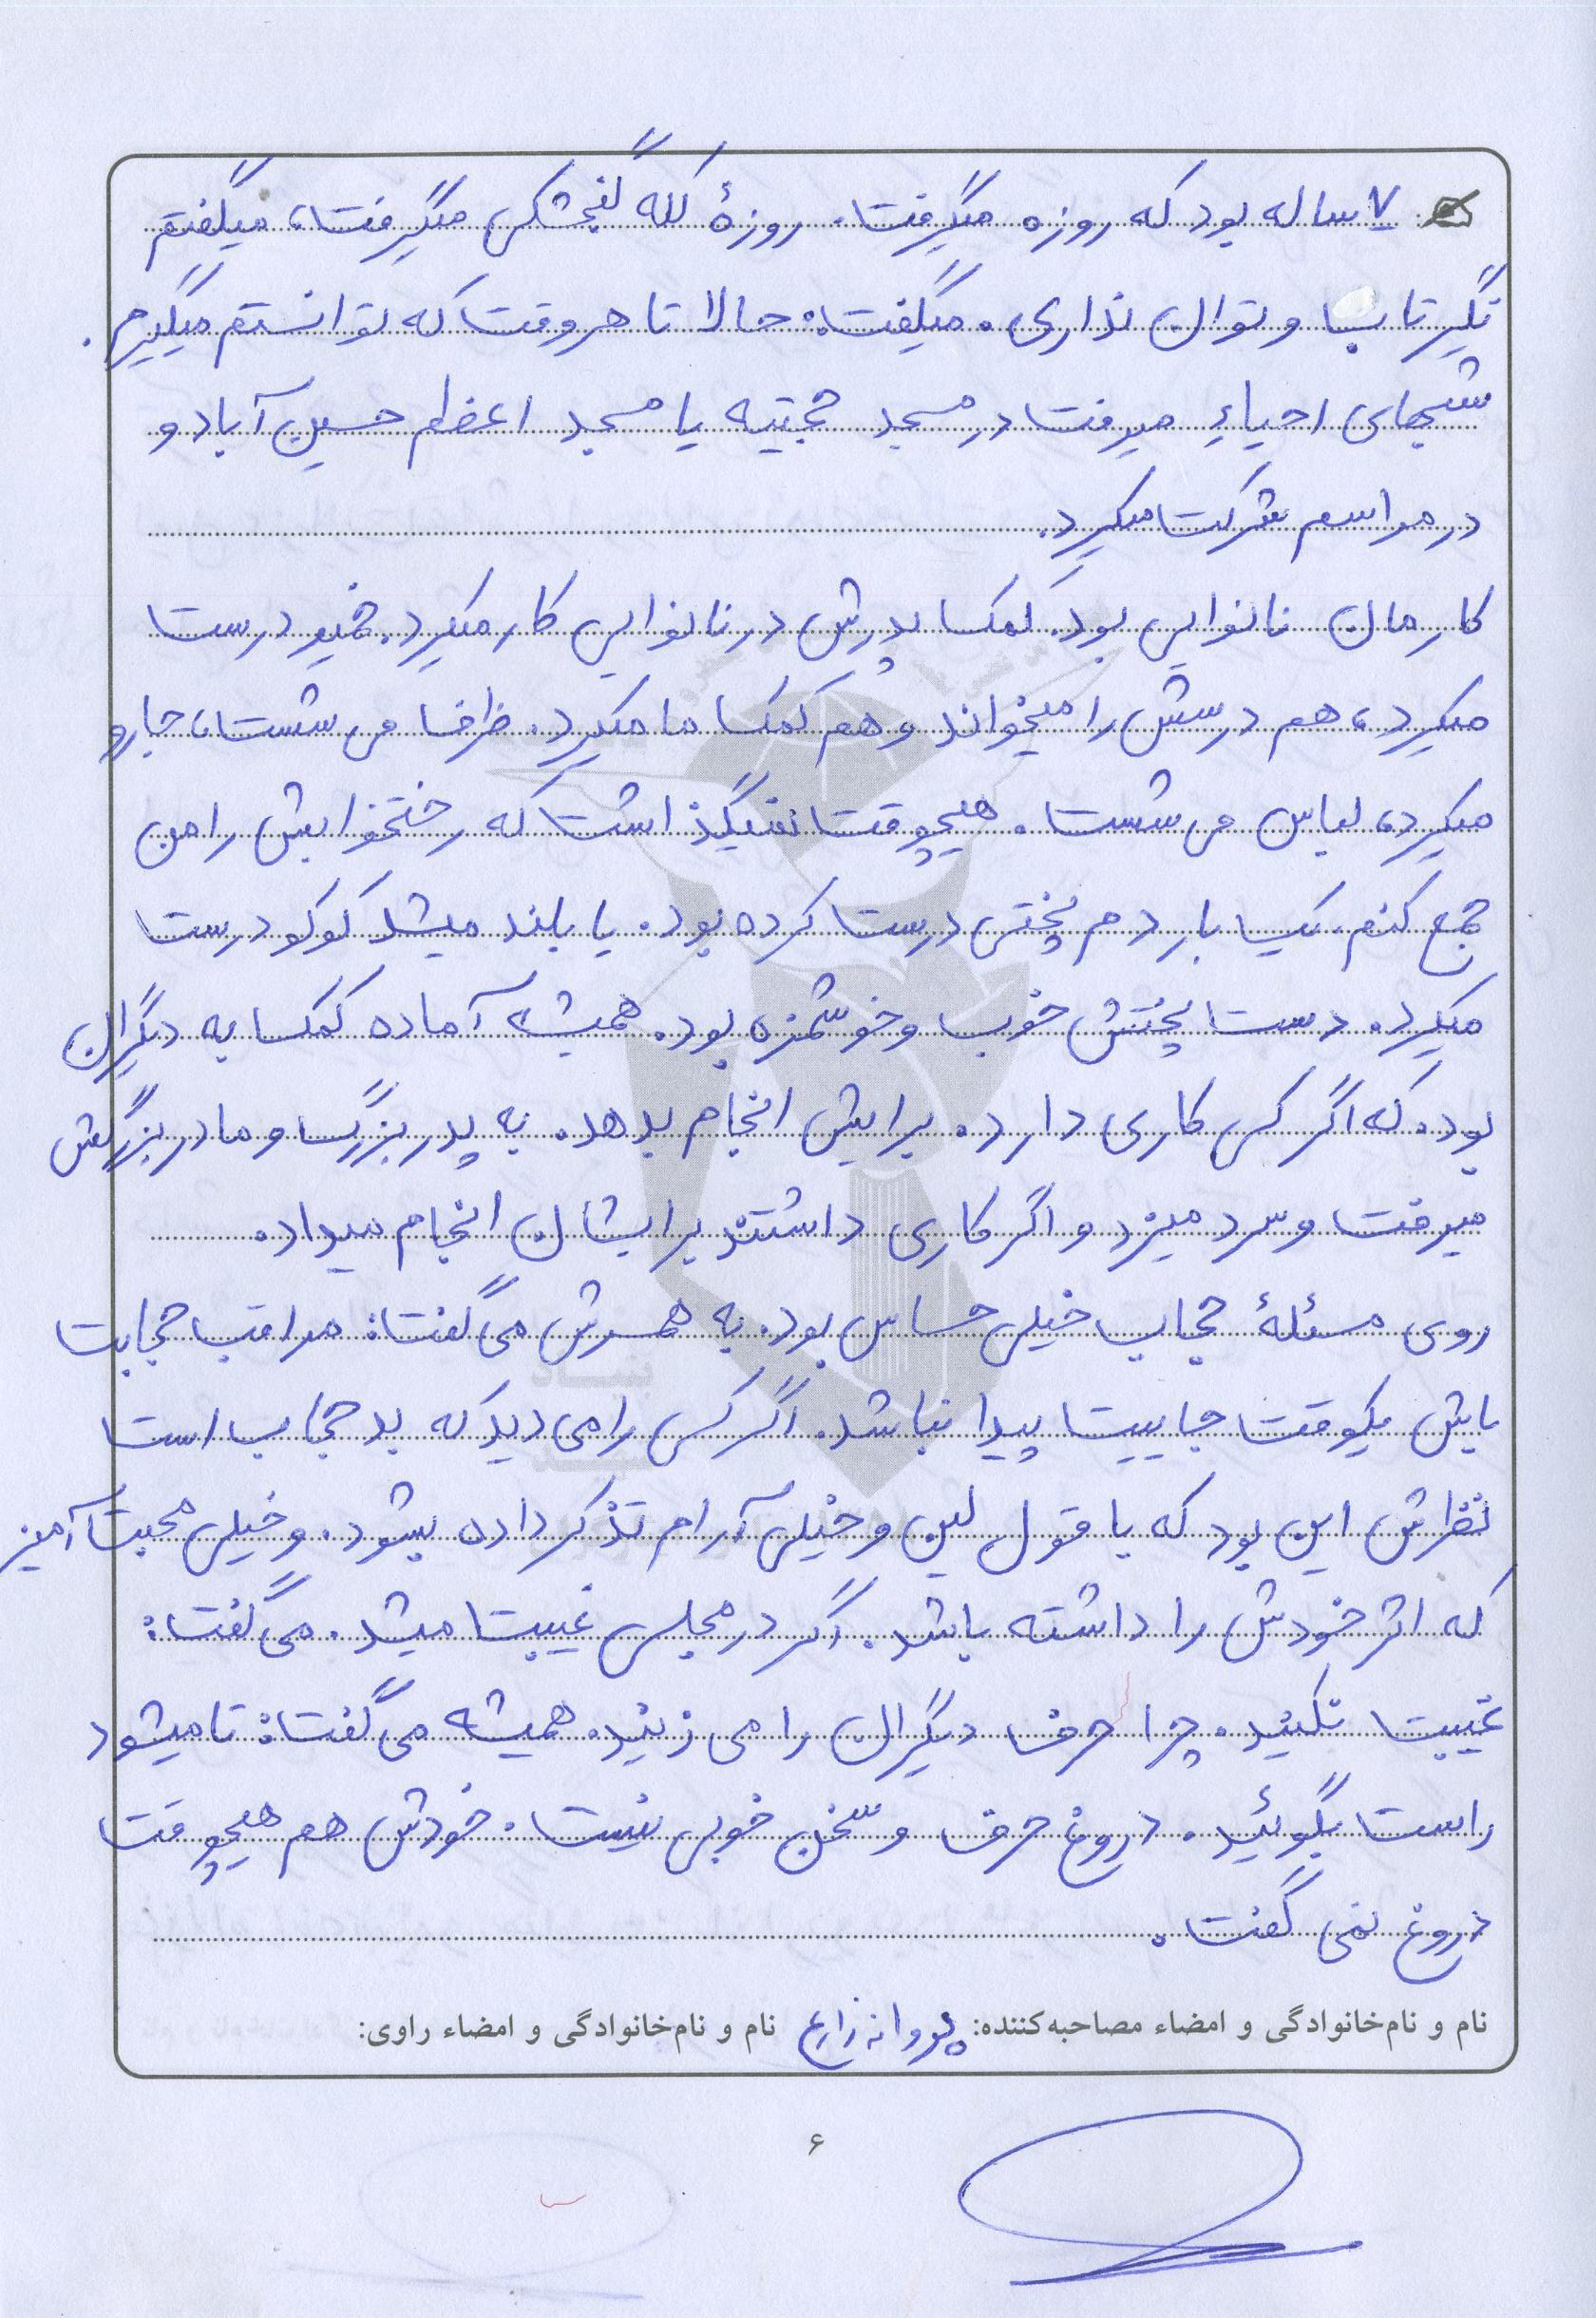 ۷ ساله بود که روزه میگرفت. روزهٔ کله گنجشکی میگرفت، میگفتم
نگیر تاب و توان نداری. میگفت: حالا تا هر وقت که توانستم میگیرم.
شبهای احیاءِ میرفت در مسجد حجتیه یا مسجد اعظم حسین آباد و
در مراسم شرکت میکرد.
کارمان نانوایی بود. کمک پدرش در نانوایی کار میکرد. خمیر درست
میکرد، هم درسش را میخواند و هم کمک ما میکرد. ظرف می شست، جارو
میکرد، لباس می شست. هیچوقت نمیگذاشت که رختخوابش را من
جمع کنم، یک بار دم پختی درست کرده بود. یا بلند میشد کوکو درست
میکرد. دست پختش خوب و خوشمزه بود. همیشه آماده کمک به دیگران
بود. که اگر کسی کاری دارد. برایش انجام بدهد. به پدربزرگ و مادربزرگش
میرفت و سر میزد و اگر کاری داشتند برایشان انجام میداد.
روی مسئلهٔ حجاب خیلی حساس بود. به همسرش می گفت: مراقب حجابت
باش یکوقت جاییت پیدا نباشد. اگر کسی را می دید که بد حجاب است
نظرش این بود که با قول لین و خیلی آرام تذکر داده بشود. و خیلی محبت آمیز
که اثر خودش را داشته باشد. اگر در مجلسی غیبت میشد. می گفت:
غیبت نکنید. چرا حرف دیگران را می زنید. همیشه می گفت: تا میشود
راست بگوئید. دروغ حرف و سخن خوبی نیست. خودش هم هیچوقت
دروغ نمی گفت.
نام و نام‌خانوادگی و امضاء مصاحبه‌کننده: پروانه زارع نام و نام‌خانوادگی و امضاء راوی:
۶